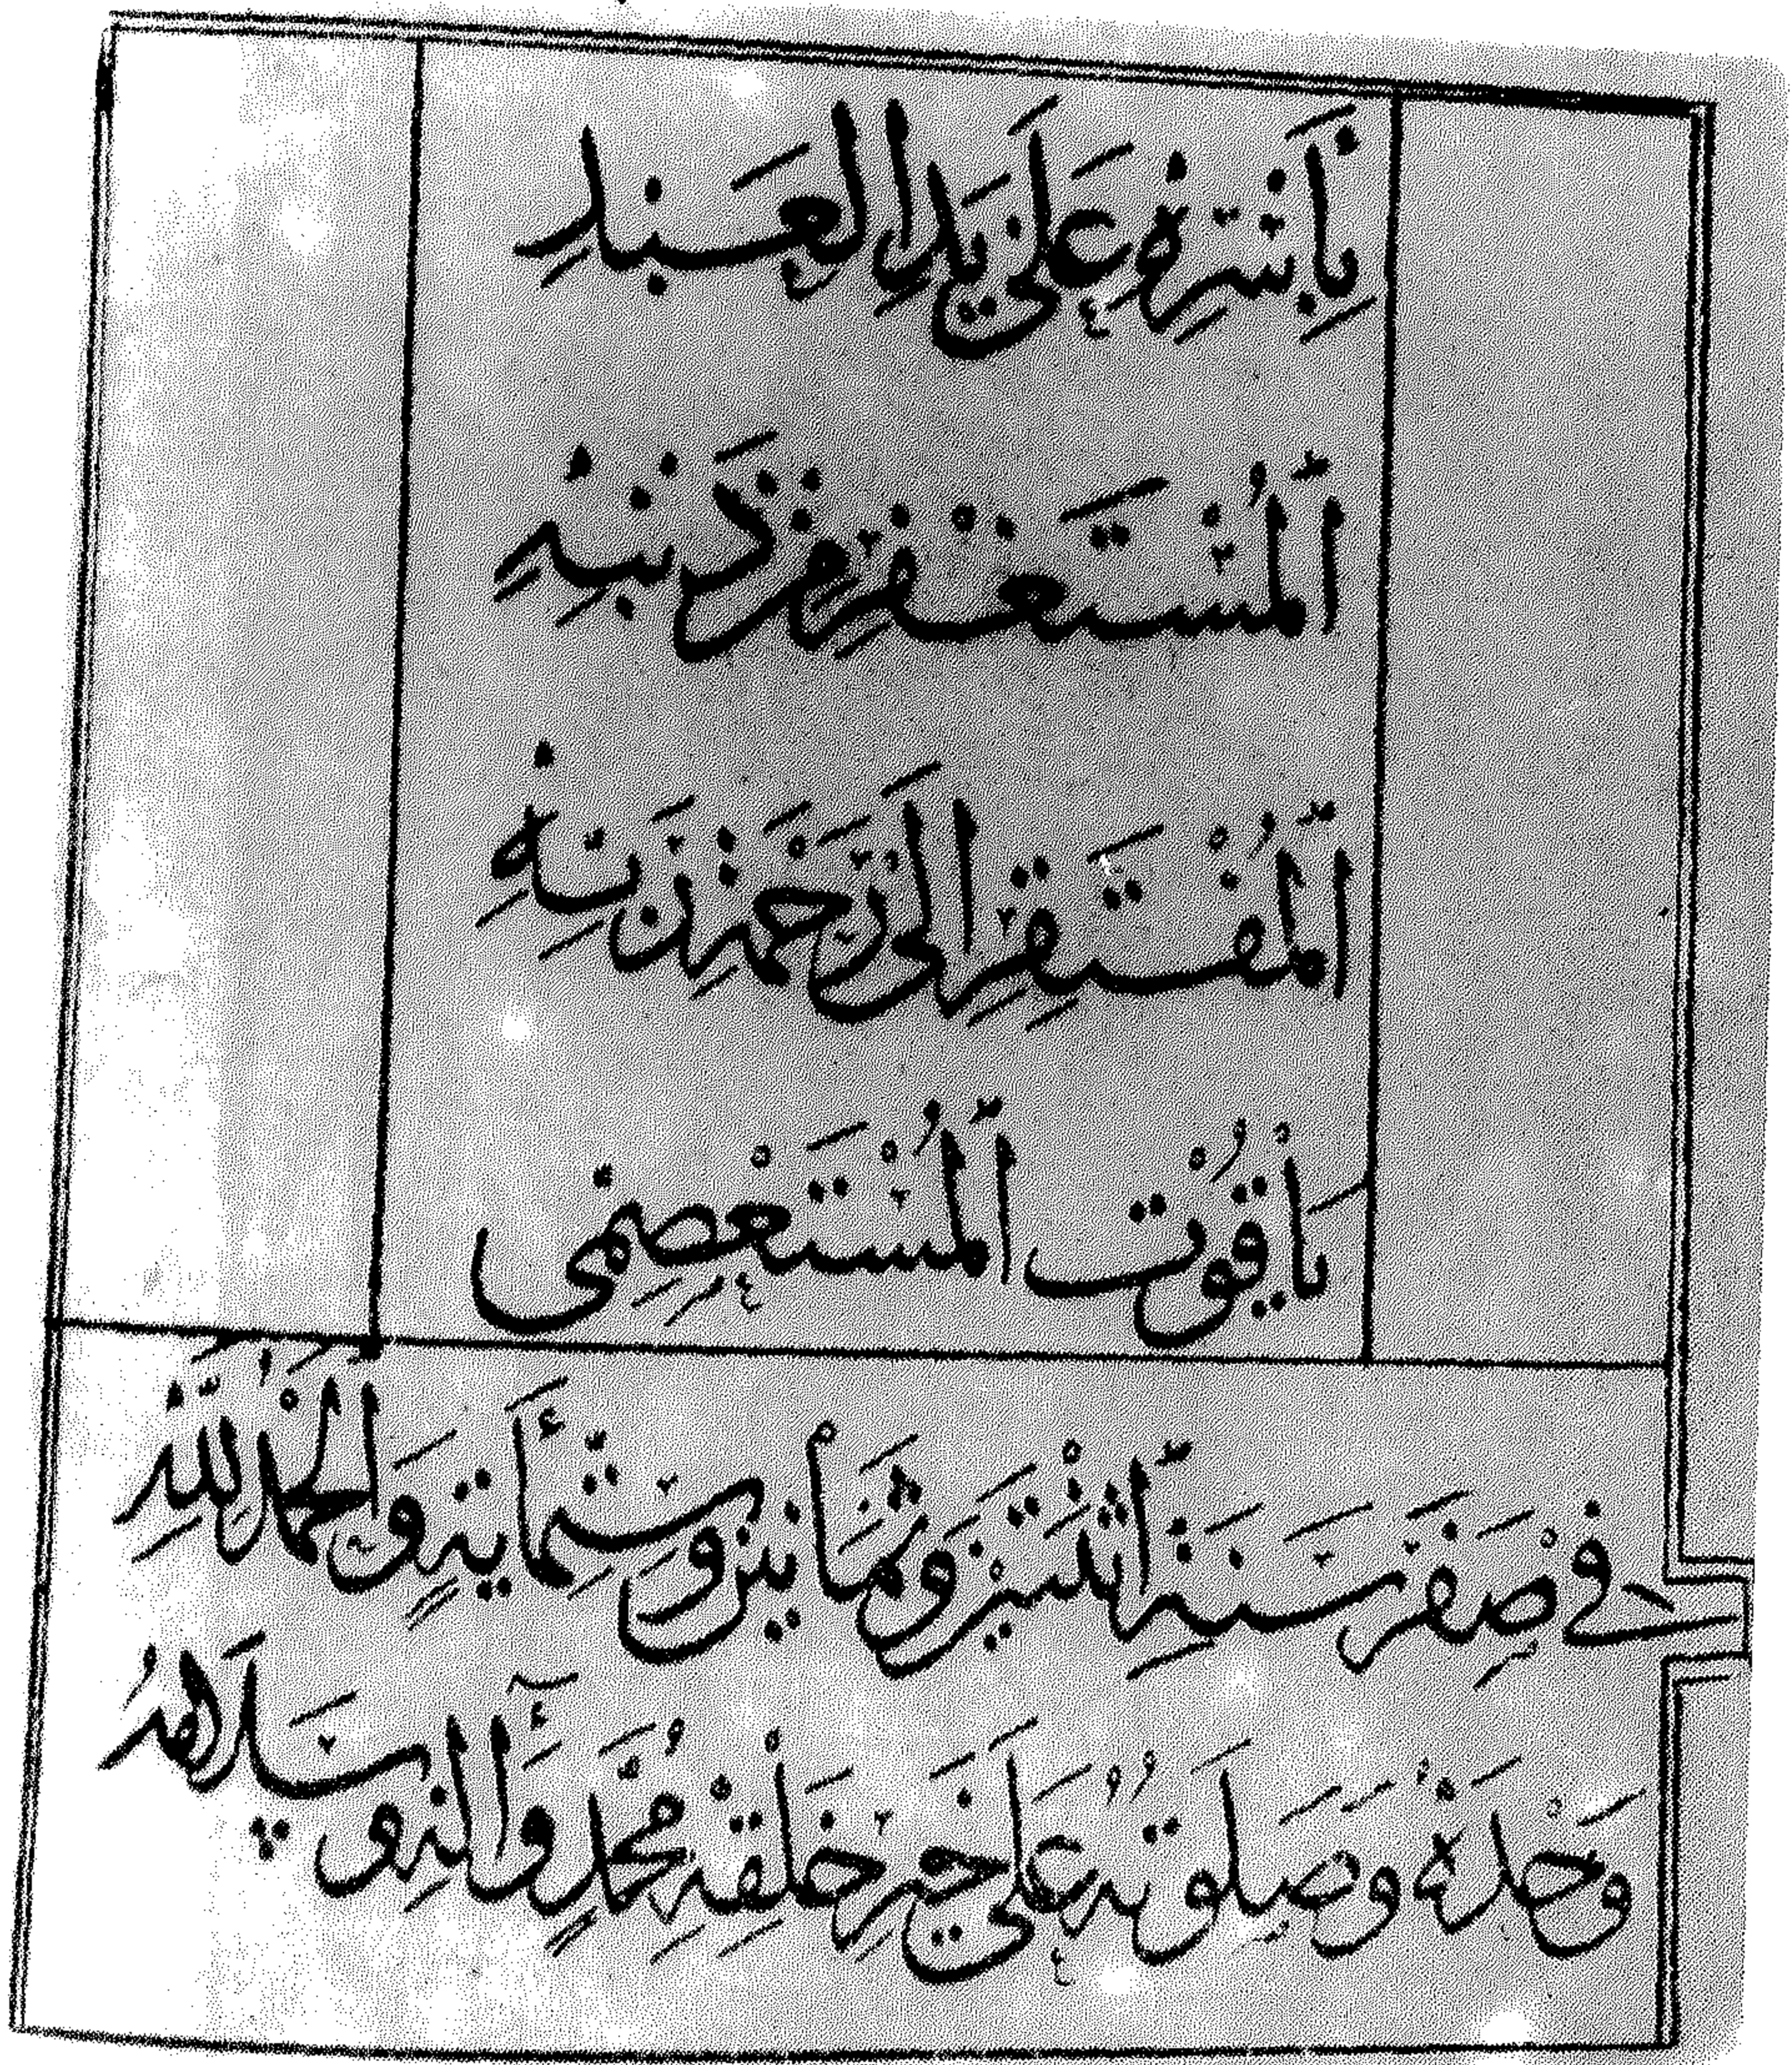 بِأَسْرِهِ عَلَى يَدِ الْعَبْدِ
اَلْمُسْتَغْفِرِ مِنْ ذَنْبِهِ
اَلْمُفْتَقِرِ إِلَى رَحْمَةِ رَبِّهِ
يَاقُوتِ الْمُسْتَعْصِمِي
فِي صَفَرَ سَنَةِ اثْنَتَيْنِ وَثَمَانِينَ وَسِتِّمِأَيَةٍ وَالْحَمْدُ لِلّٰهِ
وَحْدَهُ وَصَلَوتُهُ عَلَى خَيْرِ خَلْقِهِ مُحَمَّدٍ وَآلِهِ وَسَلَامُهُ